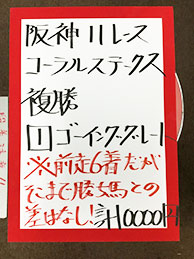 阪神11レース
コーラルステークス
複勝
1 ゴーインググレート
※前走6着だが
そこまで勝ち馬との
差はなし!計10000円